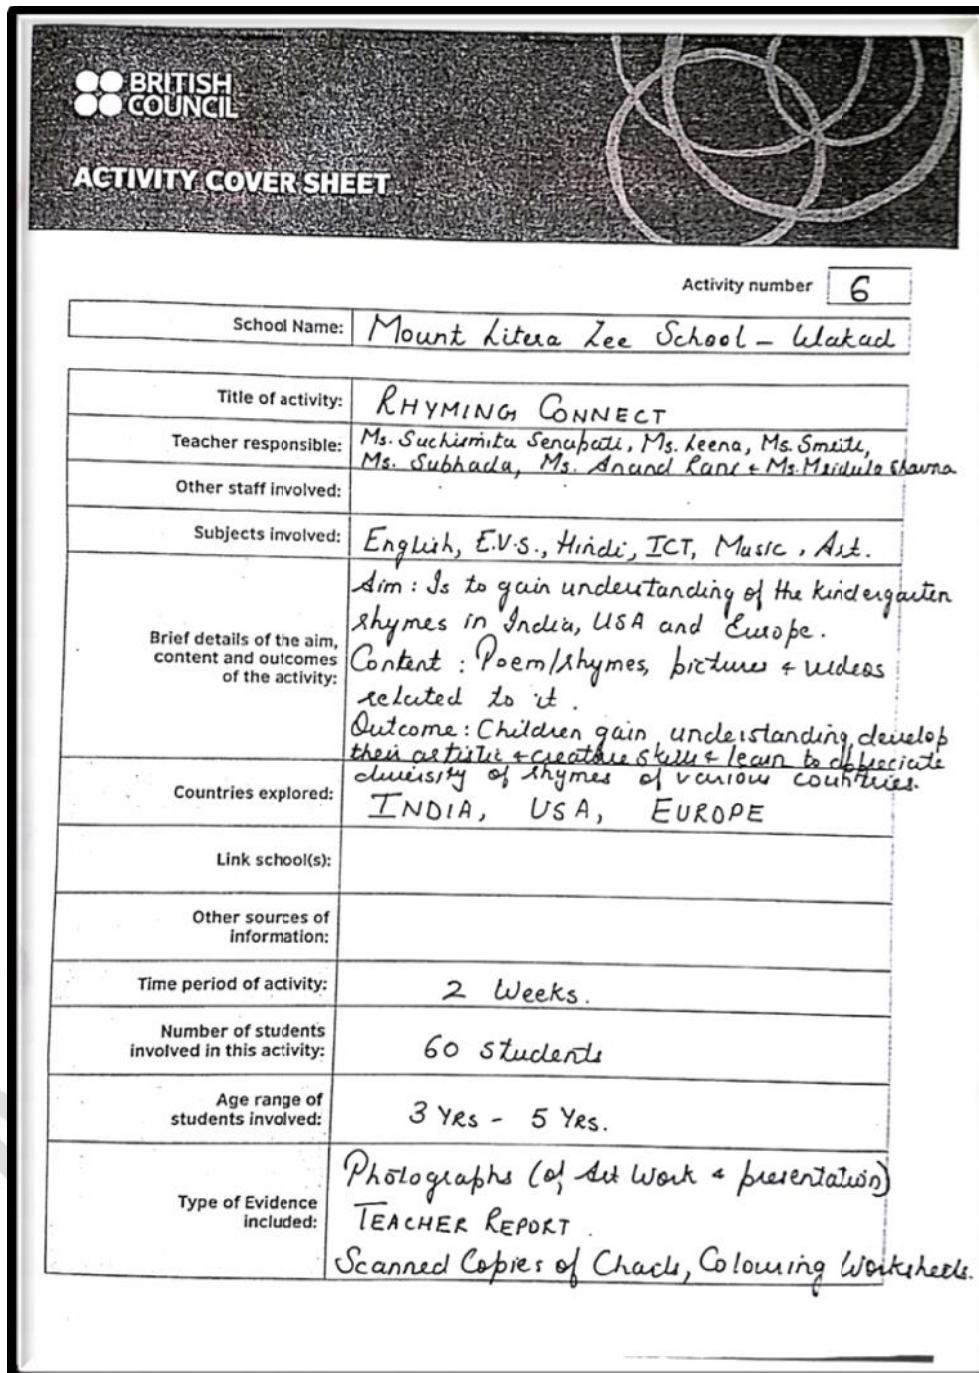 BRITISH
COUNCIL
ACTIVITY COVER SHEET
Activity number 6
School Name: Mount Litera Zee School - Wakad
Title of activity: RHYMING CONNECT
Teacher responsible: Ms. Suchismita Senapati, Ms. Leena, Ms. Smriti,
Ms. Subhada, Ms. Anand Rani & Ms. Mridula
Other staff involved:
Subjects involved: English, E.V.S., Hindi, ICT, Music, Art.
Brief details of the aim,
content and outcomes
of the activity:
Aim: Is to gain understanding of the kindergarten
rhymes in India, USA and Europe.
Content: Poem/rhymes, pictures & videos
related to it.
Outcome: Children gain understanding, develop
their artistic & creative skills & learn to appreciate
diversity of rhymes of various countries.
Countries explored: INDIA, USA, EUROPE
Link school(s):
Other sources of
information:
Time period of activity: 2 Weeks.
Number of students
involved in this activity: 60 Students
Age range of
students involved: 3 YRS - 5 YRS.
Type of Evidence
included:
Photographs (of Art Work & presentation)
TEACHER REPORT.
Scanned Copies of Charts, Colouring Worksheets.